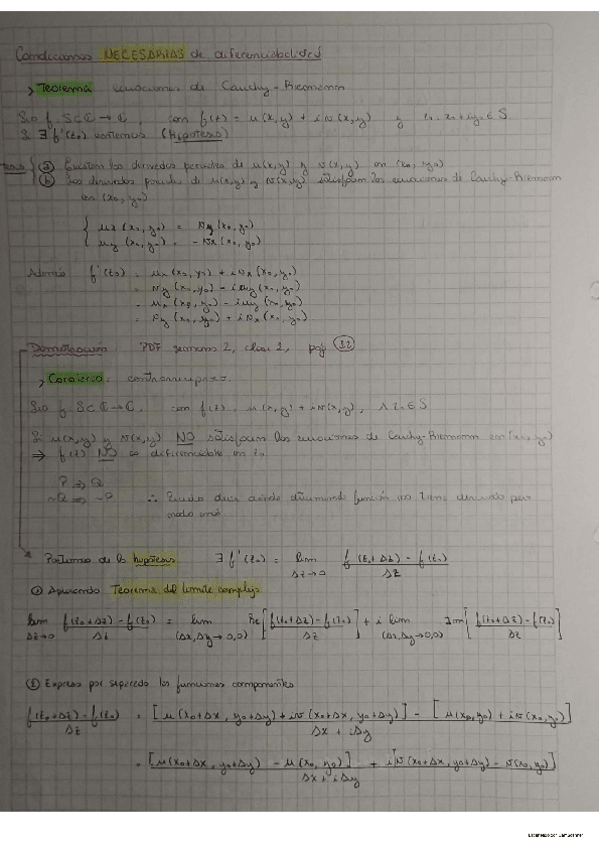 Condiciones NECESARIAS de diferenciabilidad
Teorema ecuaciones de Cauchy-Riemann
Sea f: S⊂ℂ→ℂ, con f(z) = u(x,y) + iv(x,y) y z₀ = x₀ + iy₀ ∈ S
Si ∃ f'(z₀) entonces (Hipótesis)
(a) Existen las derivadas parciales de u(x,y) y v(x,y) en (x₀, y₀)
(b) Las derivadas parciales de u(x,y) y v(x,y) satisfacen las ecuaciones de Cauchy-Riemann
en (x₀, y₀)
{ uₓ (x₀, y₀) = v_y (x₀, y₀)
u_y (x₀, y₀) = - vₓ (x₀, y₀)
Además f'(z₀) = uₓ (x₀, y₀) + i vₓ (x₀, y₀)
= v_y (x₀, y₀) - i u_y (x₀, y₀)
= uₓ (x₀, y₀) - i u_y (x₀, y₀)
= v_y (x₀, y₀) + i vₓ (x₀, y₀)
Demostración PDF semana 2, clase 1, pág 12
Corolario: contrarrecíproco.
Sea f: S⊂ℂ→ℂ, con f(z) = u(x,y) + iv(x,y), ∧ z₀ ∈ S
Si u(x,y) y v(x,y) NO satisfacen las ecuaciones de Cauchy-Riemann en (x₀, y₀)
⇒ f(z) NO es diferenciable en z₀
P ⇒ Q
~Q ⇒ ~P ∴ Puedo decir cuándo determinada función no tiene derivada pero
nada más.
Partimos de la hipótesis ∃ f'(z₀) = lim Δz→0 [f(z₀+Δz) - f(z₀)] / Δz
① Aplicando Teorema del límite complejo
lim Δz→0 [f(z₀+Δz) - f(z₀)] / Δz = lim (Δx,Δy→0,0) Re[(f(z₀+Δz) - f(z₀)) / Δz] + i lim (Δx,Δy→0,0) Im[(f(z₀+Δz) - f(z₀)) / Δz]
② Expreso por separado las funciones componentes
[f(z₀+Δz) - f(z₀)] / Δz = ([u(x₀+Δx, y₀+Δy) + iv(x₀+Δx, y₀+Δy)] - [u(x₀,y₀) + iv(x₀,y₀)]) / (Δx + iΔy)
= ([u(x₀+Δx, y₀+Δy) - u(x₀, y₀)] + i[v(x₀+Δx, y₀+Δy) - v(x₀, y₀)]) / (Δx + iΔy)